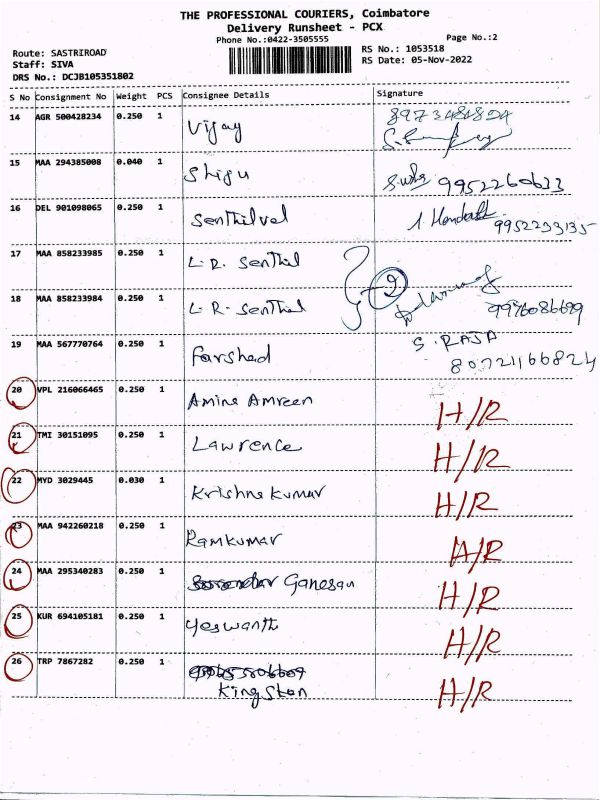 THE PROFESSIONAL COURIERS, Coimbatore
Delivery Runsheet - PCX
Phone No.:0422-3505555
Page No.:2
Route: SASTRIROAD
RS No.: 1053518
Staff: SIVA
RS Date: 05-Nov-2022
DRS No.: DCJB105351802
S No Consignment No Weight PCS Consignee Details Signature
14 AGR 500428234 0.250 1 Vijay
15 MAA 294385008 0.040 1 Shigu 9952260633
16 DEL 901098065 0.250 1 Senthilvel 9952233135
17 MAA 858233985 0.250 1 L.R. Senthil
18 MAA 858233984 0.250 1 L.R. Senthil 2 9976086699
19 MAA 567770764 0.250 1 Farshed S. RAJA
20 VPL 216066465 0.250 1 Amina Amreen H/R
21 TMI 30151095 0.250 1 Lawrence H/R
22 MYD 3029445 0.030 1 Krishna kumar H/R
23 MAA 942260218 0.250 1 Ramkumar H/R
24 MAA 295340283 0.250 1 Ganesan H/R
25 KUR 694105181 0.250 1 Yeswanth H/R
26 TRP 7867282 0.250 1 Kingsten H/R